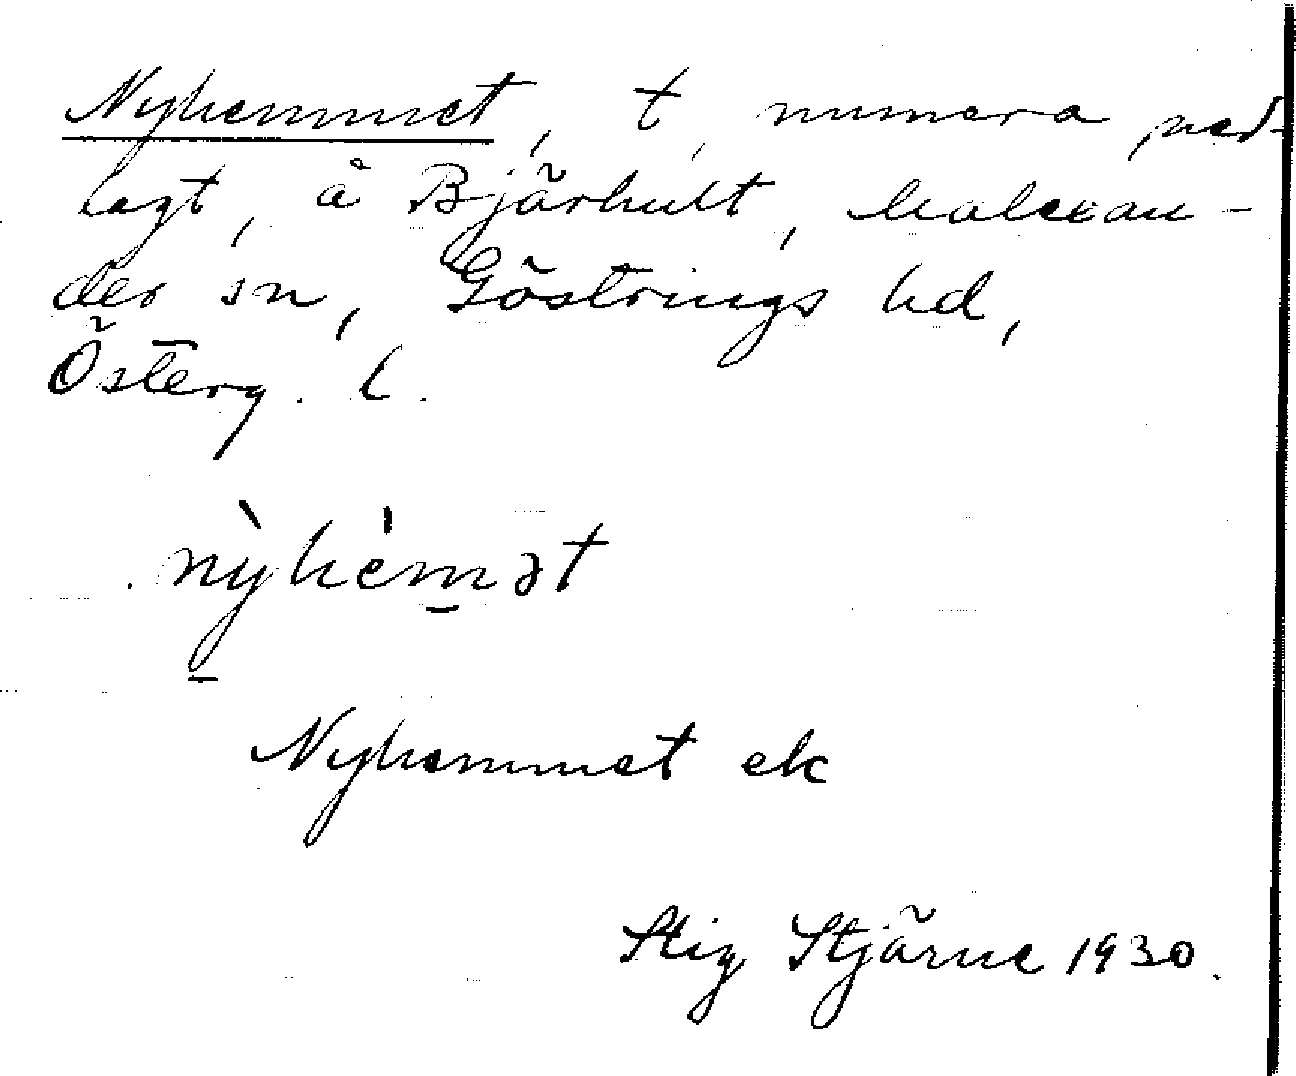 Nyhemmet, t, numera ned-
lagt, å Bjärhult, Malexan-
der sn, Göstrings hd,
Österg. l.
nỳhèmət
Nyhemmet ek
Stig Stjärne 1930.